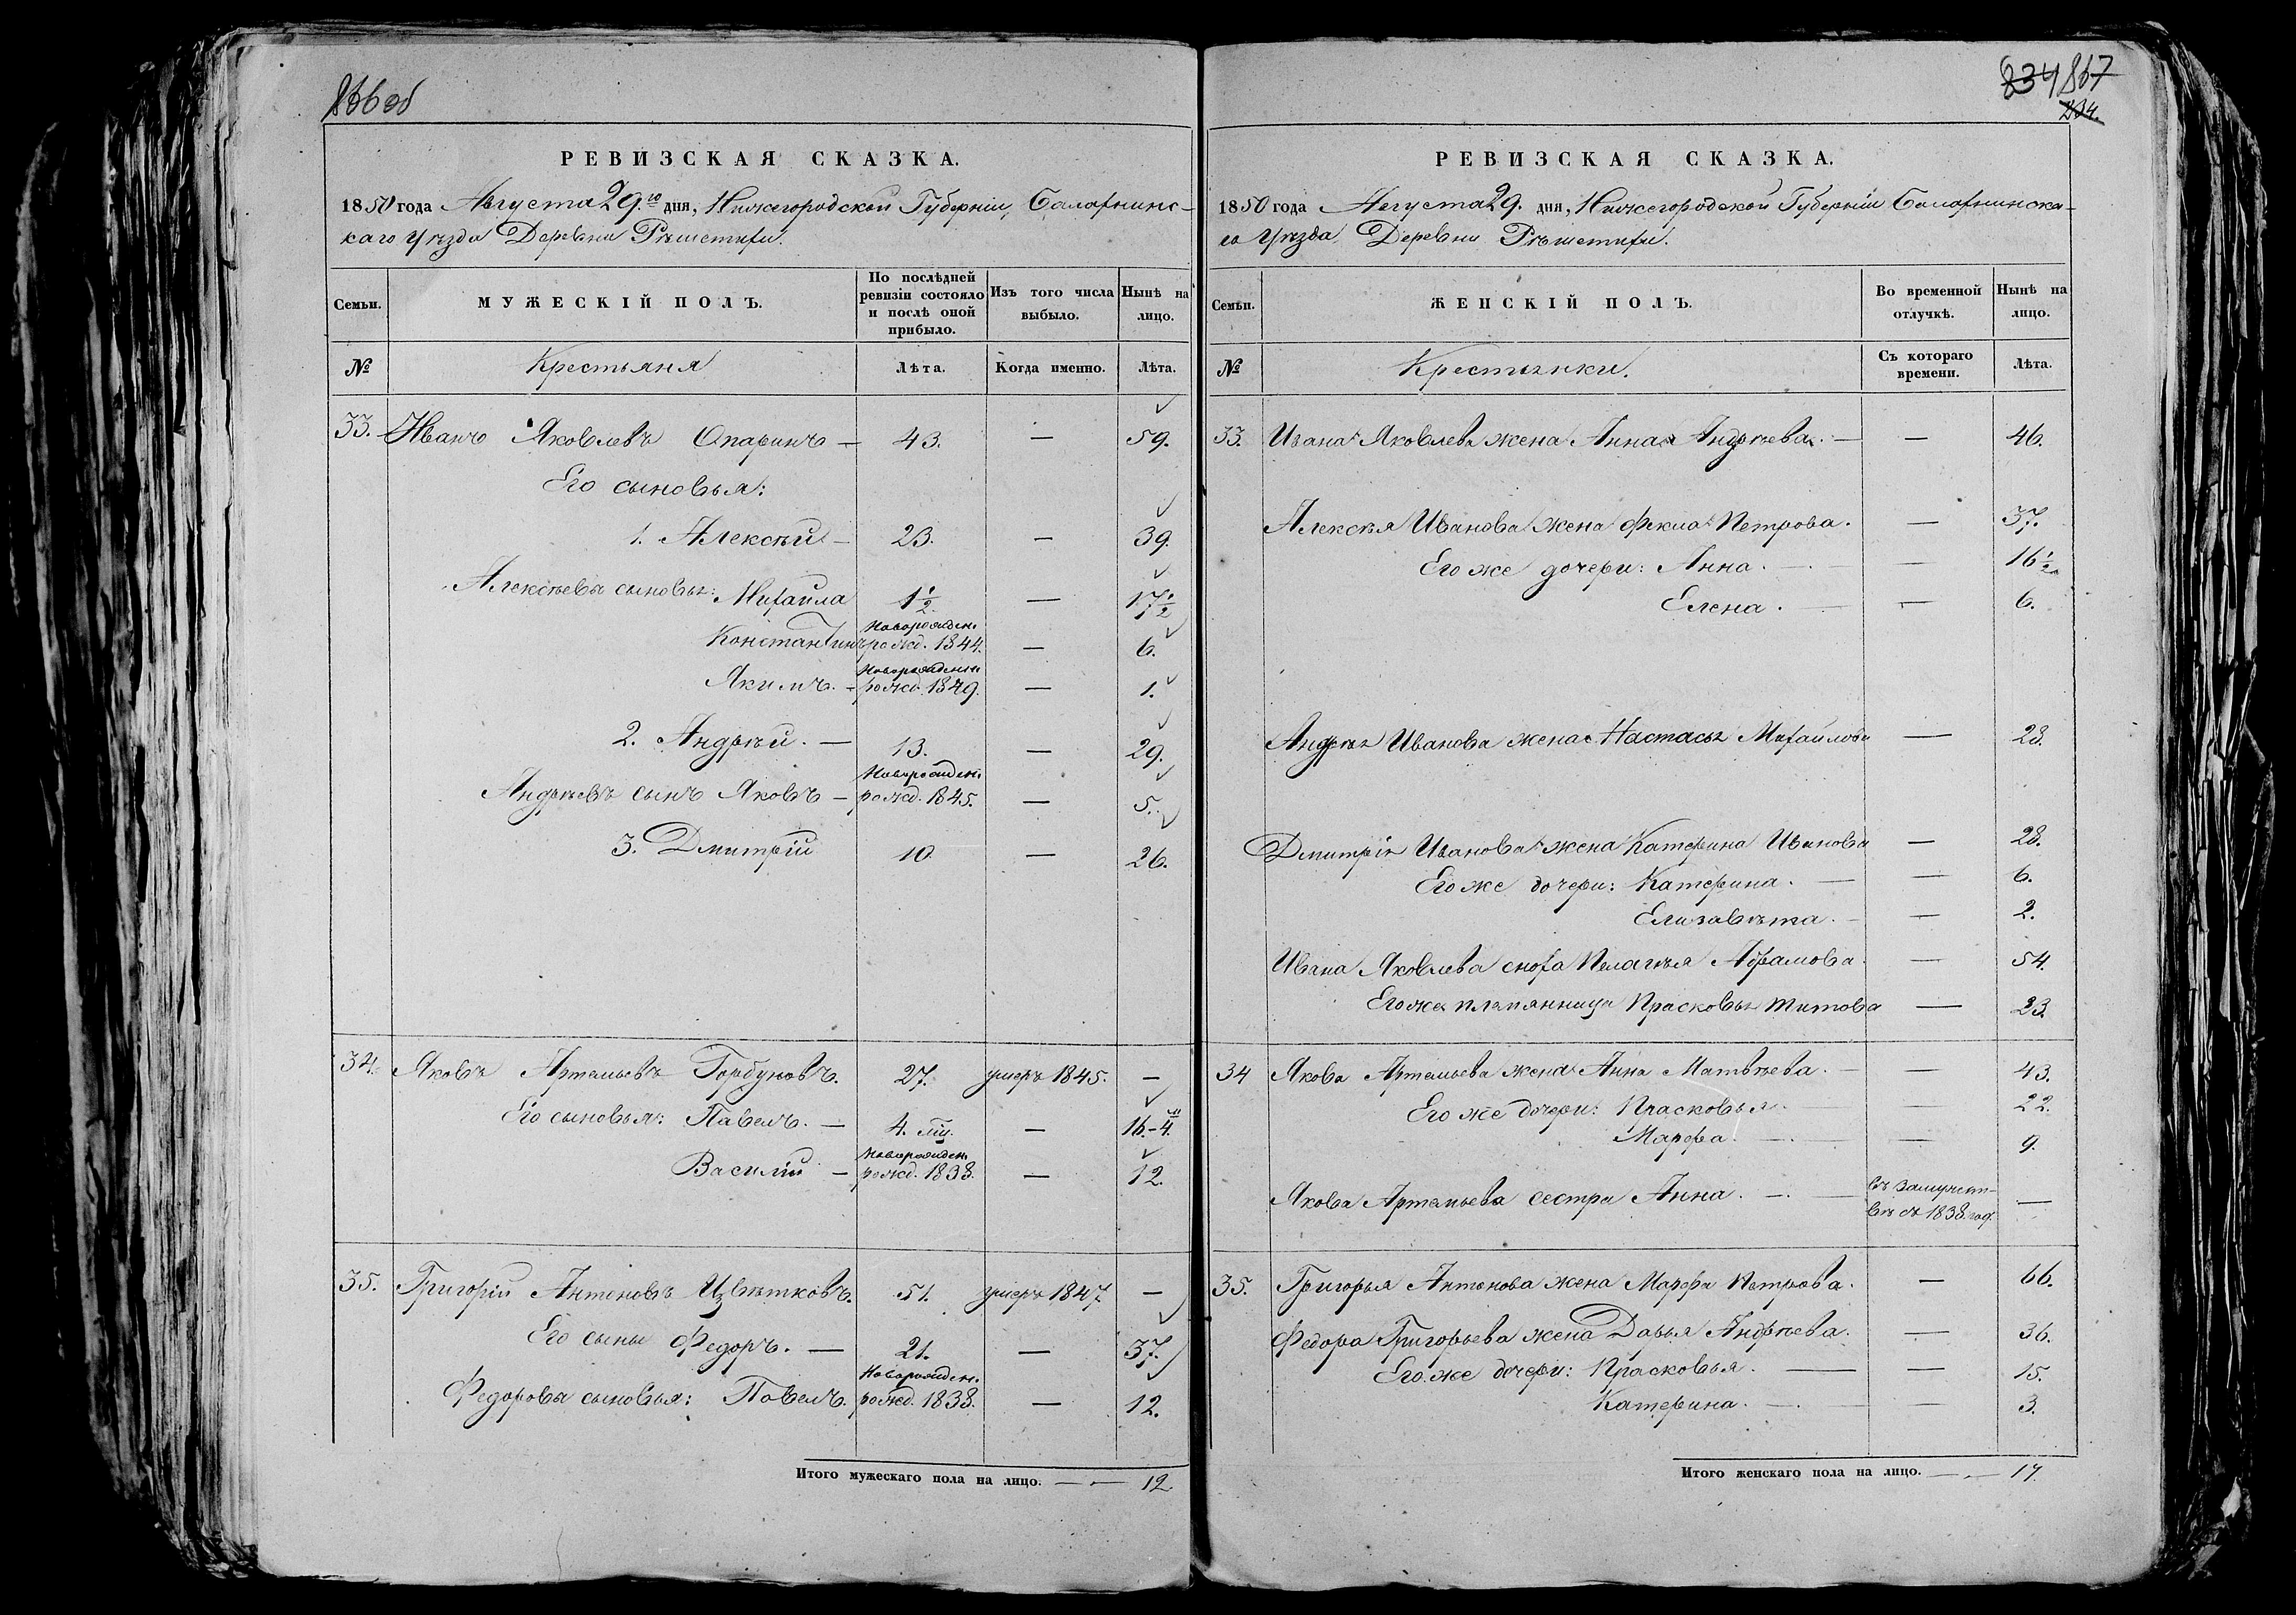 866 об
РЕВИЗСКАЯ СКАЗКА.
1850 года Августа 29.го дня, Нижегородской Губерніи, Балахнинс-
каго Уѣзда Деревни Рѣшетихи.
Семьи.
МУЖЕСКІЙ ПОЛЪ.
По послѣдней ревизіи состояло и послѣ оной прибыло.
Изъ того числа выбыло.
Нынѣ на лицо.
№ Крестьяня Лѣта. Когда именно. Лѣта.
33. Иванъ Яковлевъ Опаринъ — 43. — 59.
Его сыновья:
1. Алексѣй — 23. — 39.
Алексѣевы сыновья: Михайла 1½ — 17½
Новорожден.
Константинъ рожд. 1844. — 6.
Новорожденн
Якимъ. — рожд. 1849. — 1.
2. Андрѣй. — 13. — 29.
Новорожден.
Андрѣевъ сынъ Яковъ — рожд. 1845. — 5.
3. Дмитрій 10. — 26.
34. Яковъ Артемьевъ Горбуновъ. 27. умеръ 1845. —
Его сыновья: Павелъ. — 4. мц. — 16.–4.
Новорожден
Василій — рожд. 1838. — 12.
35. Григорій Антоновъ Цвѣтковъ. 51. умеръ 1847. —
Его сынъ Федоръ. — 21. — 37.
Новорожден.
Федоровы сыновья: Павелъ. рожд. 1838. — 12.
Итого мужескаго пола на лицо. — — 12
834 867
234.
РЕВИЗСКАЯ СКАЗКА.
1850 года Августа 29. дня, Нижегородской Губерніи Балахнинска-
го Уѣзда, Деревни Рѣшетихи.
Семьи.
ЖЕНСКІЙ ПОЛЪ.
Во временной отлучкѣ.
Нынѣ на лицо.
№ Крестьянки. Съ котораго времени. Лѣта.
33. Ивана Яковлева жена Анна Андрѣева. — — 46.
Алексѣя Иванова жена Фекла Петрова. — 37.
Его же дочери: Анна. — — 16½
Елена. — — 6.
Андрѣя Иванова жена Настасья Михайлова — 28.
Дмитрія Иванова жена Катерина Иванова — 28.
Его же дочери: Катерина. — — 6.
Елизавѣта. — — 2.
Ивана Яковлева сноха Пелагѣя Абрамова. — 54.
Его же племянница Прасковья Титова — 23.
34 Якова Артемьева жена Анна Матвѣева. — — 43.
Его же дочери: Прасковья. — — 22.
Марфа. — — 9.
Якова Артемьева сестра Анна. — въ замужест-
вѣ съ 1838. год. —
35. Григорья Антонова жена Марфа Петрова. — 66.
Федора Григорьева жена Дарья Андрѣева. — 36.
Его же дочери: Прасковья. — — 15.
Катерина. — — 3.
Итого женскаго пола на лицо. — — 17.